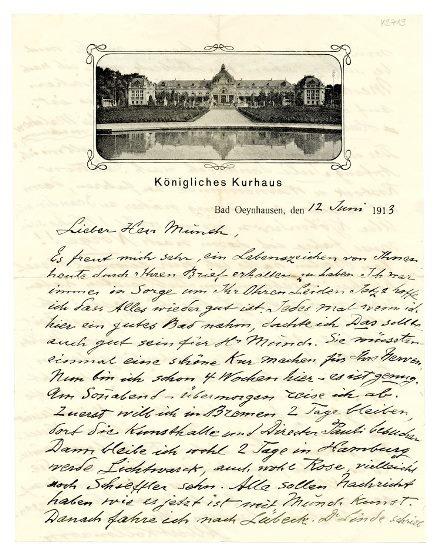 K2713
Königliches Kurhaus
Bad Oeynhausen, den 12 Juni 1913
Lieber Herr Münch,
Es freut mich sehr, ein Lebenszeichen von Ihnen
heute durch Ihren Brief erhalten zu haben. Ich war
immer in Sorge um Ihr Ohren Leiden. Jetzt hoffe
ich dass Alles wieder gut ist. Jedes mal wenn ich
hier ein gutes Bad nahm, dachte ich Das sollte
auch gut sein für Hr Münch. Sie müssten
einmal eine schöne Kur machen für Ihre Nerven.
Nun bin ich schon 4 Wochen hier – es ist genug.
Am Sonabend – übermorgen reise ich ab.
Zuerst will ich in Bremen 2 Tage bleiben,
dort die Kunsthalle und Director Pauli besuchen
Dann bleibe ich wohl 2 Tage in Hamburg
werde Lichtwark, auch wohl Rose, vielleicht
noch Scheffler sehen. Alle sollen Nachricht
haben wie es jetzt ist mit Münch Kunst.
Danach fahre ich nach Lübeck. Dr Linde schrieb